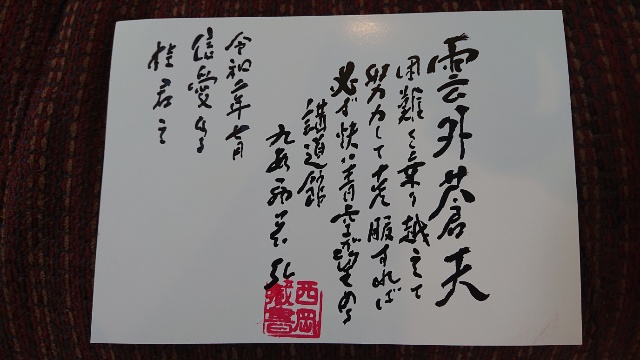 雲外蒼天
困難を乗り越えて
努力して克服すれば
必ず快い青空が望める
講道館
九段西岡弘
西岡
蔵書
令和二年七月
信愛なる
桂君え